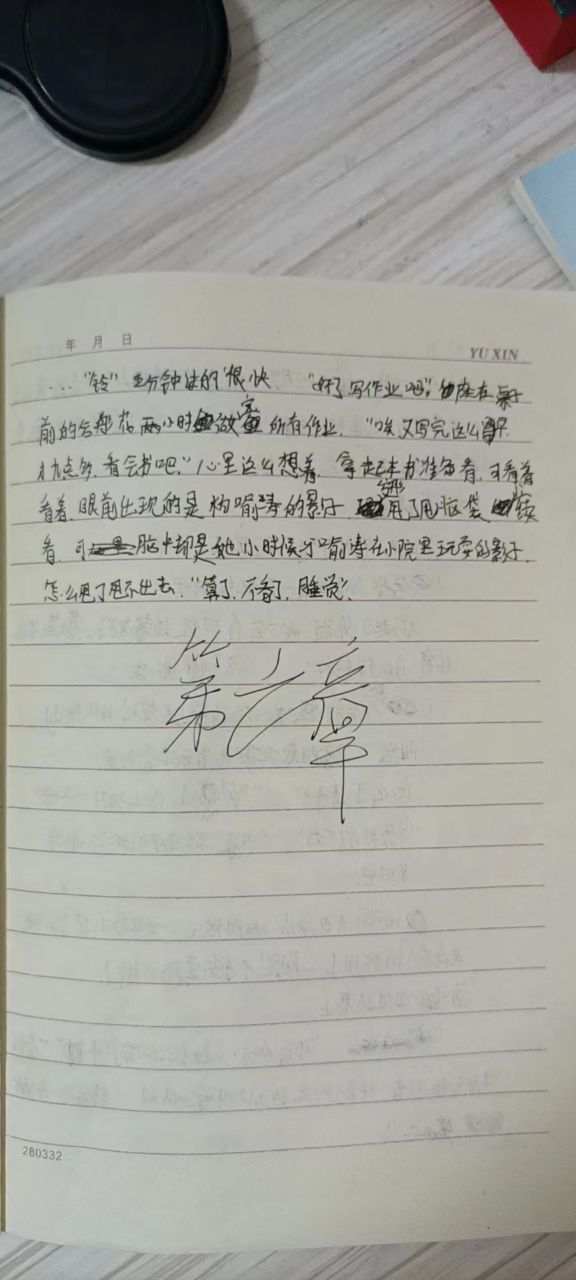 年 月 日
YU XIN
... "铃" 分钟过的很快. "好了写作业吧", 坐在桌子
前的 花两小时 做完所有作业. "唉又写完这么早
才九点多, 看会书吧," 心里这么想着, 拿起本书准备看, 可看着
看着, 眼前出现的是 喻 的影子, 甩了甩脑袋 继续
看, 可 脑中却是她小时候 喻 在小院里玩耍的影子,
怎么甩了甩不出去, "算了, 不看了, 睡觉".
第六章
280332